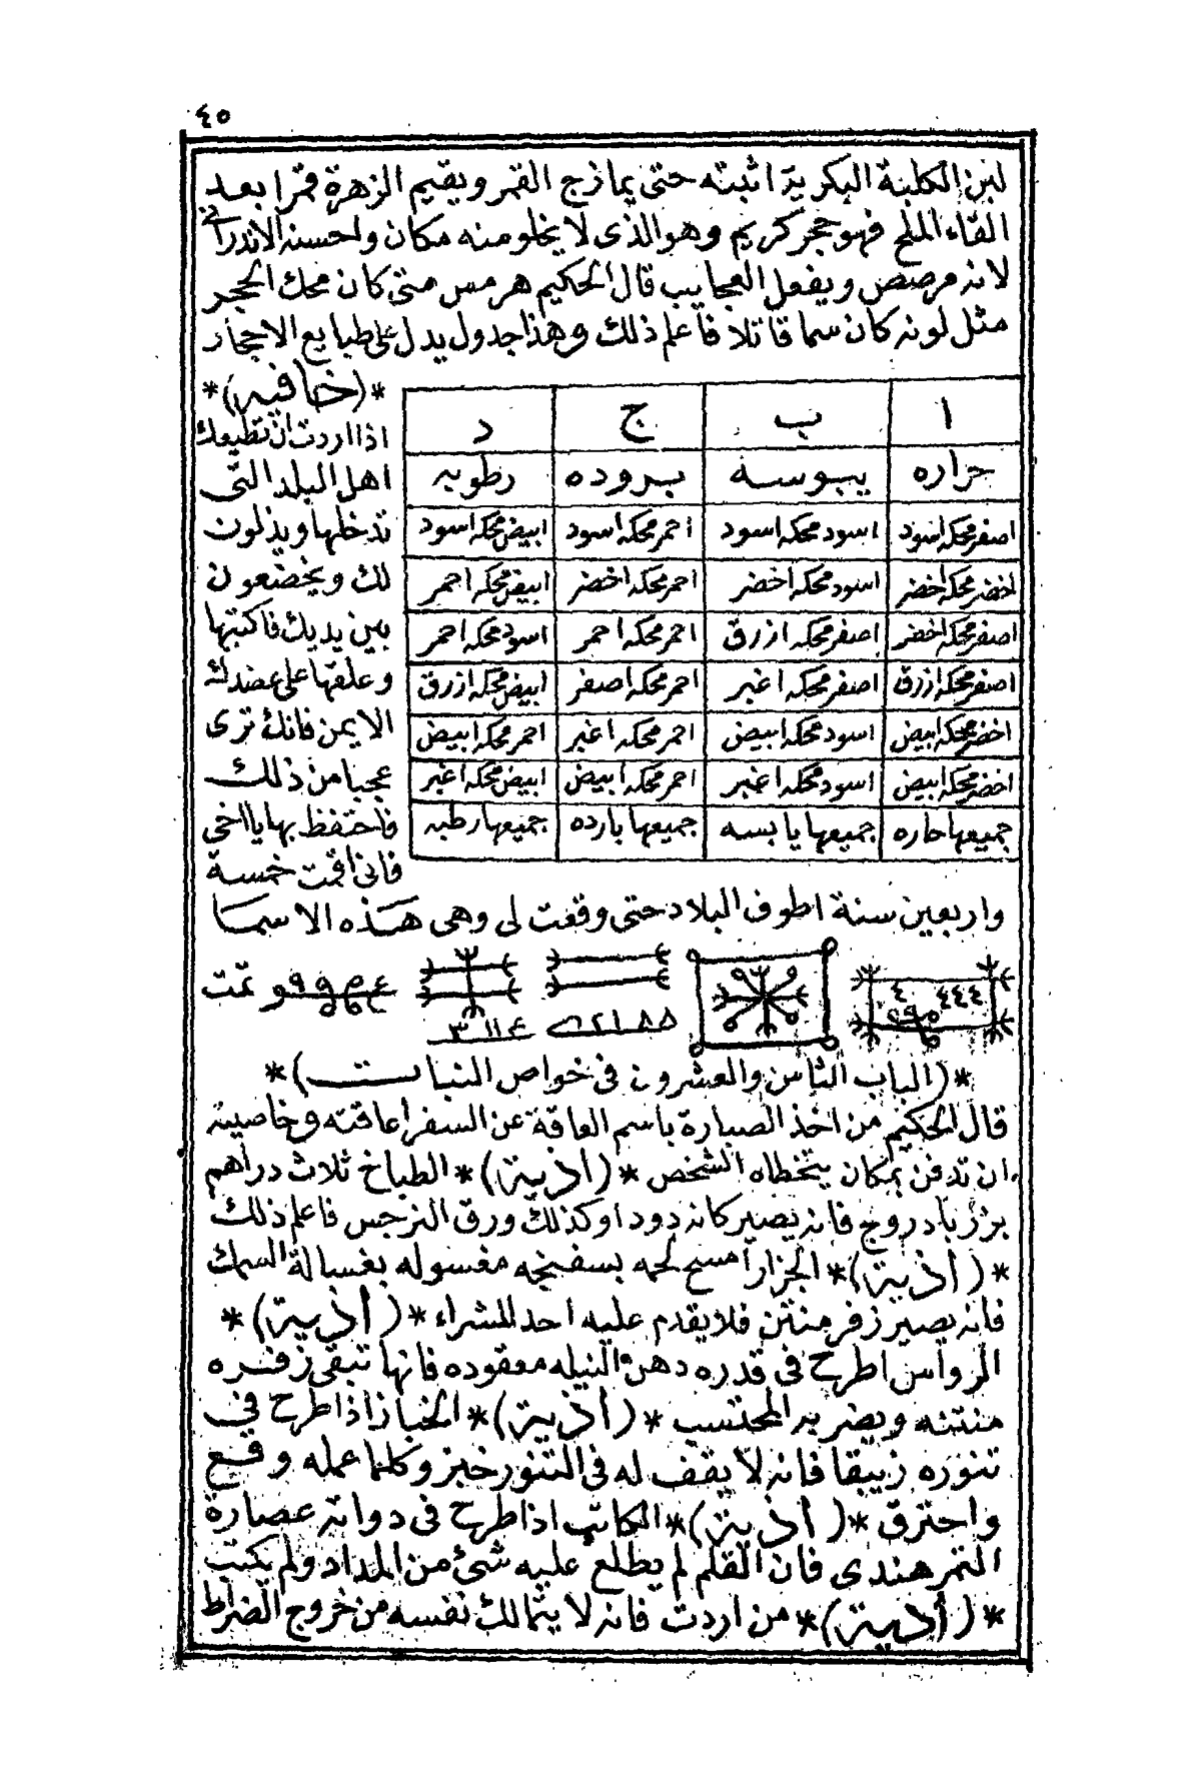 ٤٥
لبن الكلبة البكرية اثبته حتى يمازج القمر ويقيم الزهرة قمرا بعد
القاء الملح فهو حجر كريم وهو الذى لا يخلو منه مكان واحسنه الاندرانى
لانه مرصص ويفعل العجايب قال الحكيم هرمس متى كان محك الحجر
مثل لونه كان سما قاتلا فاعلم ذلك وهذا جدول يدل على طبايع الاحجار
ا ب ج د
حراره يبوسه بروده رطوبه
اصفر محكه اسود اسود محكه اسود احمر محكه اسود ابيض محكه اسود
اخضر محكه اخضر اسود محكه اخضر احمر محكه اخضر ابيض محكه احمر
اصفر محكه اخضر اصفر محكه ازرق احمر محكه احمر اسود محكه احمر
اصفر محكه ازرق اصفر محكه اغبر احمر محكه اصفر ابيض محكه ازرق
اخضر محكه ابيض اسود محكه ابيض احمر محكه اغبر احمر محكه ابيض
اخضر محكه ابيض اسود محكه اغبر احمر محكه ابيض ابيض محكه اغبر
جميعها حاره جميعها يابسه جميعها بارده جميعها رطبه
*(خافيه)*
اذا اردت ان تطيعك
اهل البلد التى
تدخلها ويذلون
لك ويخضعون
بين يديك فاكتبها
وعلقها على عضدك
الايمن فانك ترى
عجبا من ذلك
فاحتفظ بها يا اخى
فانى اقمت خمسة
واربعين سنة اطوف البلاد حتى وقعت لى وهى هذه الاسما
تمت
*(الباب الثامن والعشرون فى خواص النبات)*
قال الحكيم من اخذ الصبارة باسم العاقة عن السفر اعاقته وخاصيته
ان تدفن بمكان يتخطاه الشخص *(اذية)* الطباخ ثلاث دراهم
بزر بادروج فانه يصير كانه دود اوكذلك ورق النرجس فاعلم ذلك
*(اذية)* الجزار امسح لحمه بسفنجه مغسوله بغسالة السمك
فانه يصير زفر منتن فلا يقدم عليه احد للشراء *(أذية)*
الرواس اطرح فى قدره دهن النيله معقوده فانها تبقى زفره
منتنه ويضربه المحتسب *(أذية)* الخباز اذا طرح فى
تنوره زيبقا فانه لا يقف له فى التنور خبز وكلما عمله وقع
واحترق *(أذية)* الكاتب اذا طرح فى دواته عصارة
التمر هندى فان القلم لم يطلع عليه شئ من المداد ولم يكتب
*(أدية)* من اردت فانه لا يتمالك نفسه من خروج الضراط